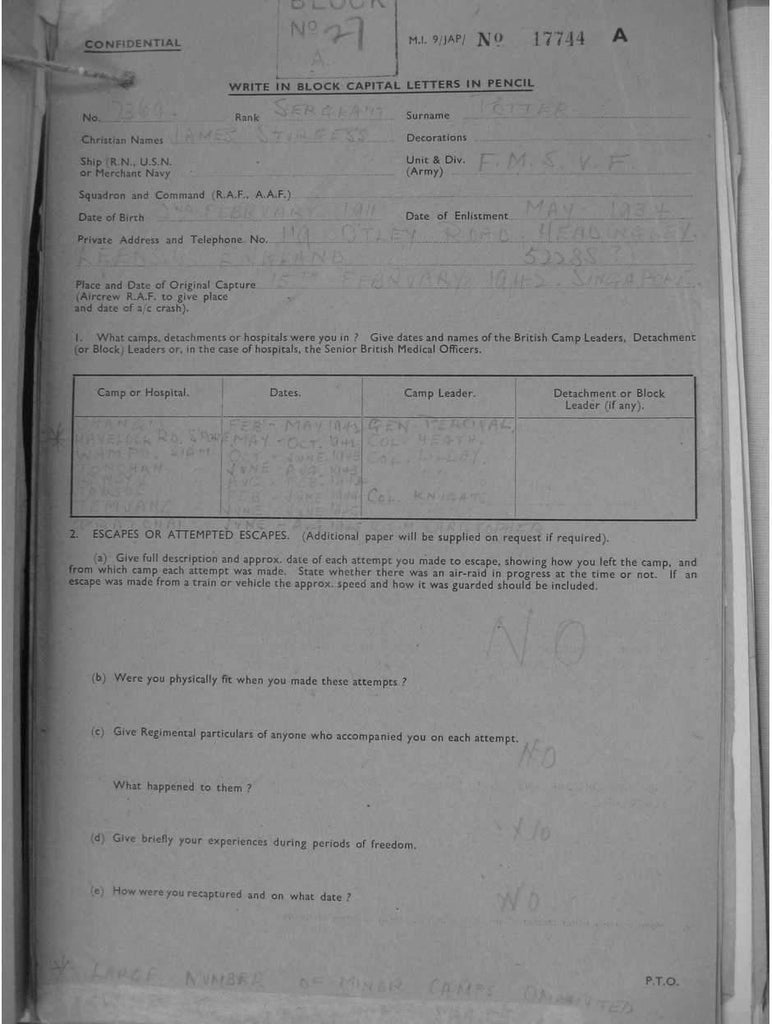 BLOCK
No 27
A.
CONFIDENTIAL
M.I. 9/JAP/ No 17744 A
WRITE IN BLOCK CAPITAL LETTERS IN PENCIL
No. 7369. Rank SERGEANT Surname POTTER
Christian Names JAMES Decorations
Ship (R.N., U.S.N. or Merchant Navy
Unit & Div. (Army) F. M. S. V. F.
Squadron and Command (R.A.F., A.A.F.)
Date of Birth 2ND FEBRUARY 1911 Date of Enlistment MAY - 1934
Private Address and Telephone No. 119 OTLEY ROAD, HEADINGLEY.
LEEDS ENGLAND 52285
Place and Date of Original Capture 15TH FEBRUARY 1942. SINGAPORE.
(Aircrew R.A.F. to give place
and date of a/c crash).
1. What camps, detachments or hospitals were you in ? Give dates and names of the British Camp Leaders, Detachment
(or Block) Leaders or, in the case of hospitals, the Senior British Medical Officers.
Camp or Hospital. Dates. Camp Leader. Detachment or Block Leader (if any).
CHANGI FEB - MAY 1942 GEN PERCIVAL
HAVELOCK RD. MAY - OCT. 1942 COL HEATH.
WAMPO, SIAM OCT. - JUNE 1943 COL. LILLEY.
TONCHAN JUNE - AUG. 1943 " "
AUG - FEB. 1944
FEB - JUNE 1944 COL. KNIGHT.
JUNE
2. ESCAPES OR ATTEMPTED ESCAPES. (Additional paper will be supplied on request if required).
(a) Give full description and approx. date of each attempt you made to escape, showing how you left the camp, and
from which camp each attempt was made. State whether there was an air-raid in progress at the time or not. If an
escape was made from a train or vehicle the approx. speed and how it was guarded should be included.
NO
(b) Were you physically fit when you made these attempts ?
(c) Give Regimental particulars of anyone who accompanied you on each attempt.
NO
What happened to them ?
(d) Give briefly your experiences during periods of freedom.
NO
(e) How were you recaptured and on what date ?
NO
P.T.O.
* LARGE NUMBER OF MINOR CAMPS OMMITTED